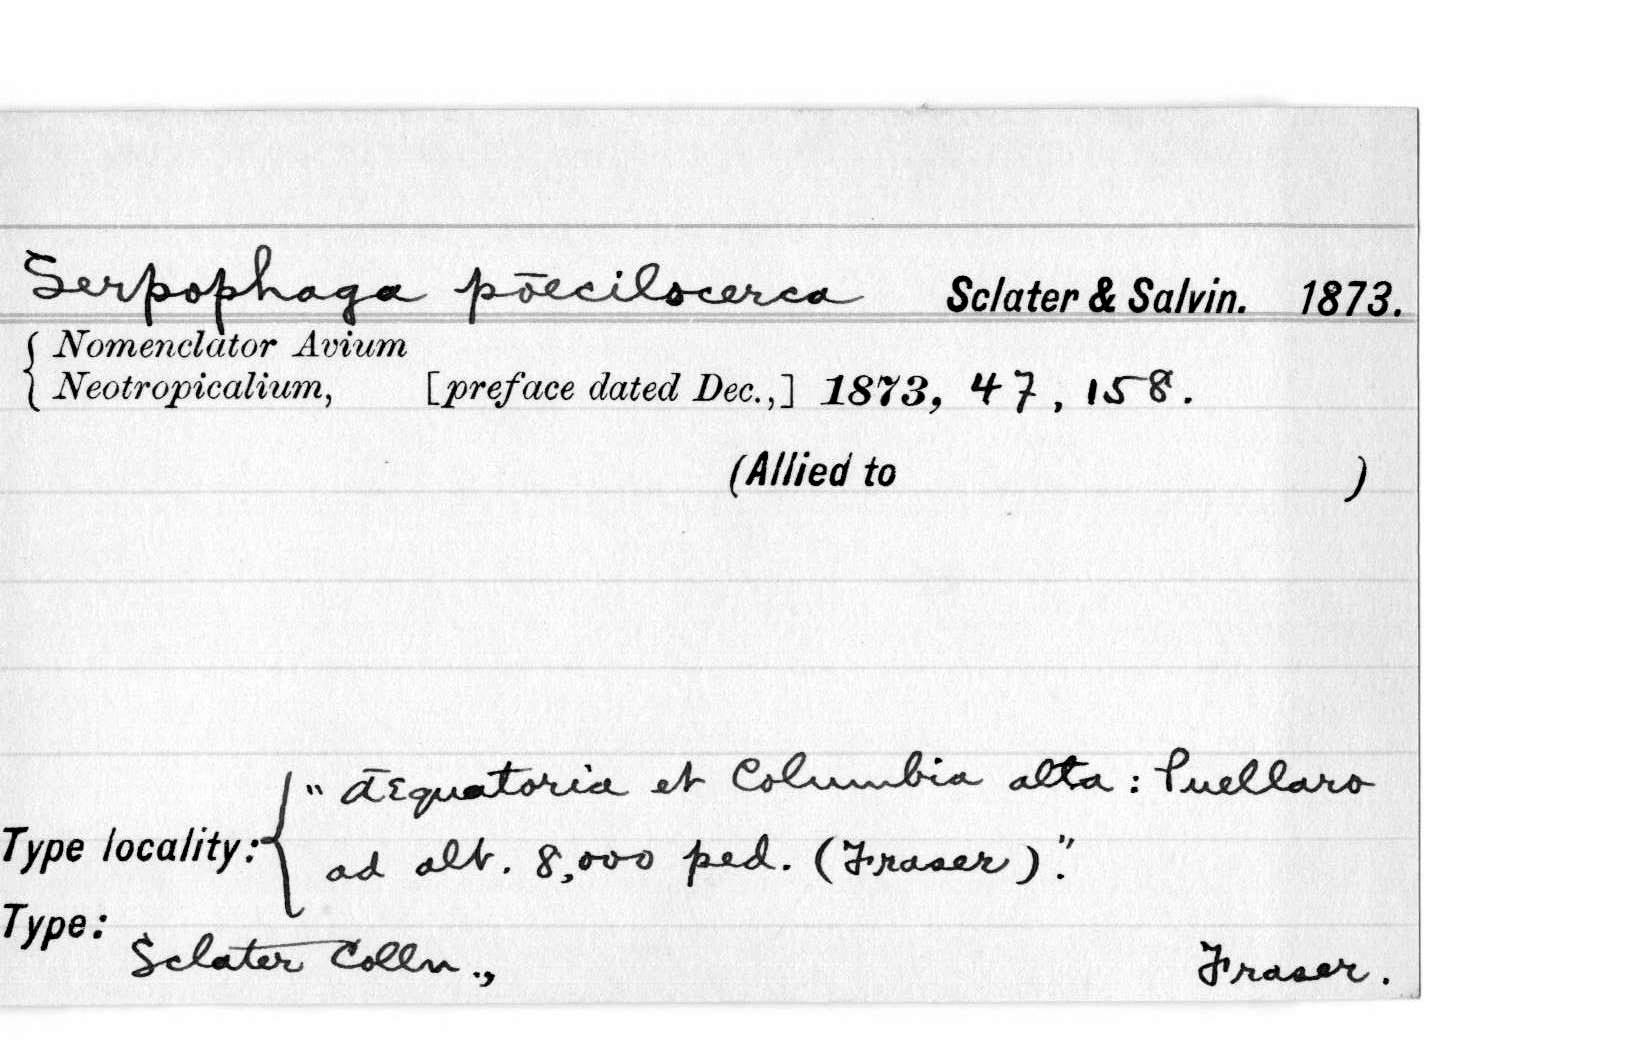 Serpophaga pōecilocerca Sclater & Salvin. 1873.
{ Nomenclator Avium
Neotropicalium, [preface dated Dec.,] 1873, 47, 158.
(Allied to )
" Æquatoria et Columbia alta: Puellaro
Type locality: ad alt. 8,000 ped. (Fraser)."
Type:
Sclater Colln., Fraser.